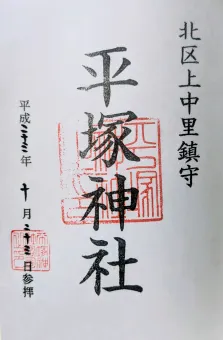 北区上中里鎮守
平塚神社
平成二十三年 十月二十三日参拝